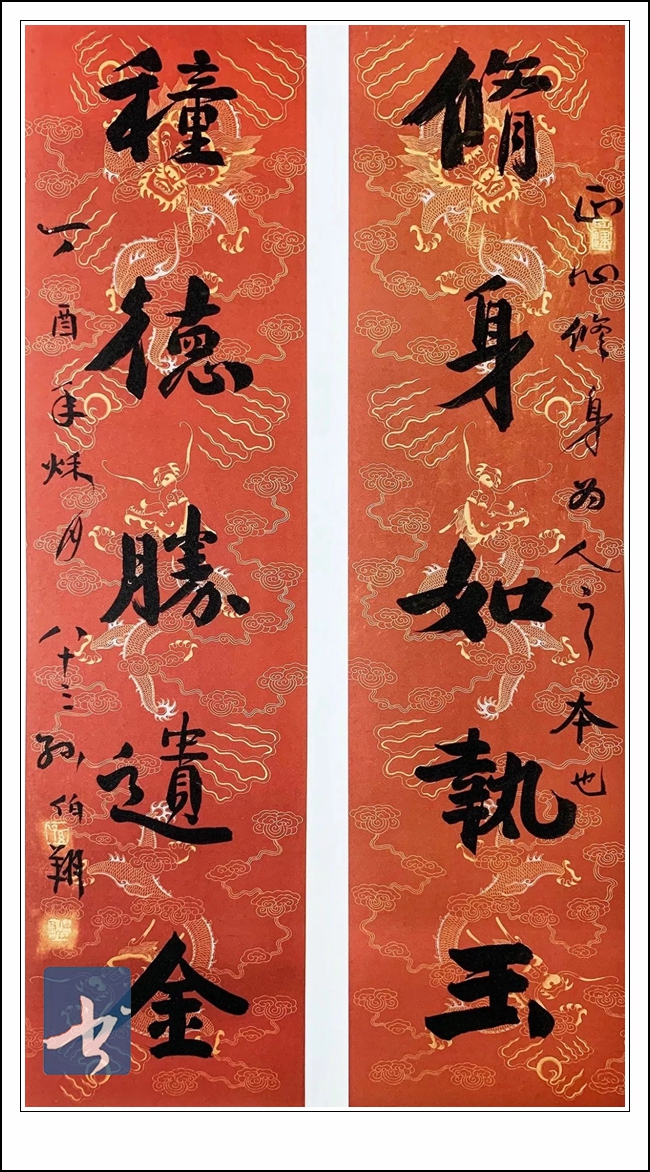 正心修身為人之本也
脩身如執玉
種德勝遺金
丁酉年秌月
八十三孫伯翔
书